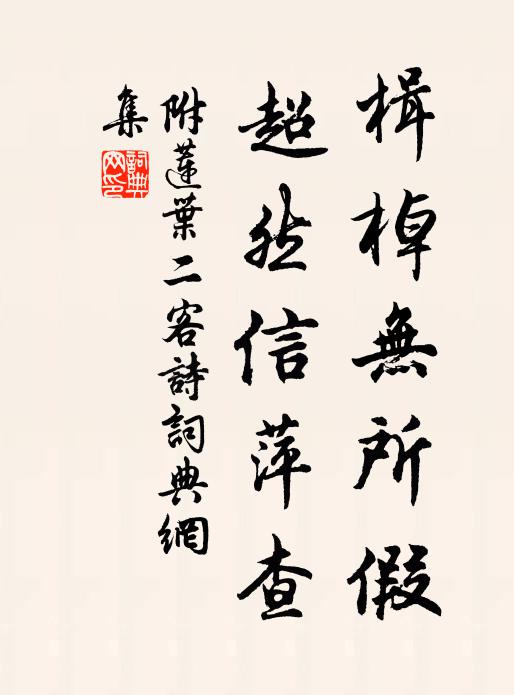 楫棹無所假
超然信萍查
附蓮葉二客詩詞典網
集
詞典網印